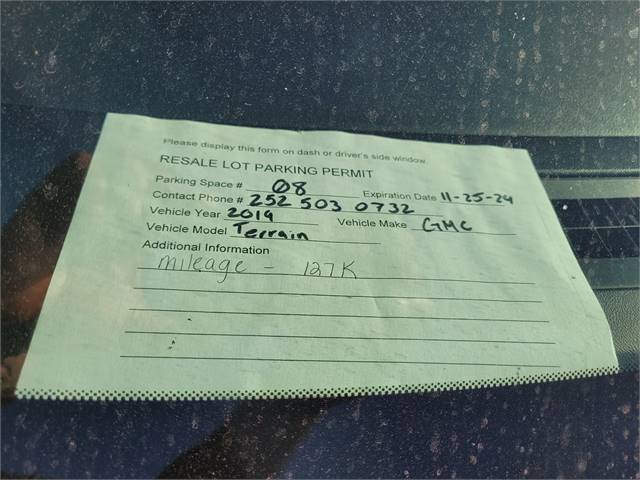 Please display this form on dash or driver's side window.
RESALE LOT PARKING PERMIT
Parking Space # 08 Expiration Date 11-25-24
Contact Phone # 252 503 0732
Vehicle Year 2019 Vehicle Make GMC
Vehicle Model Terrain
Additional Information
mileage - 127K